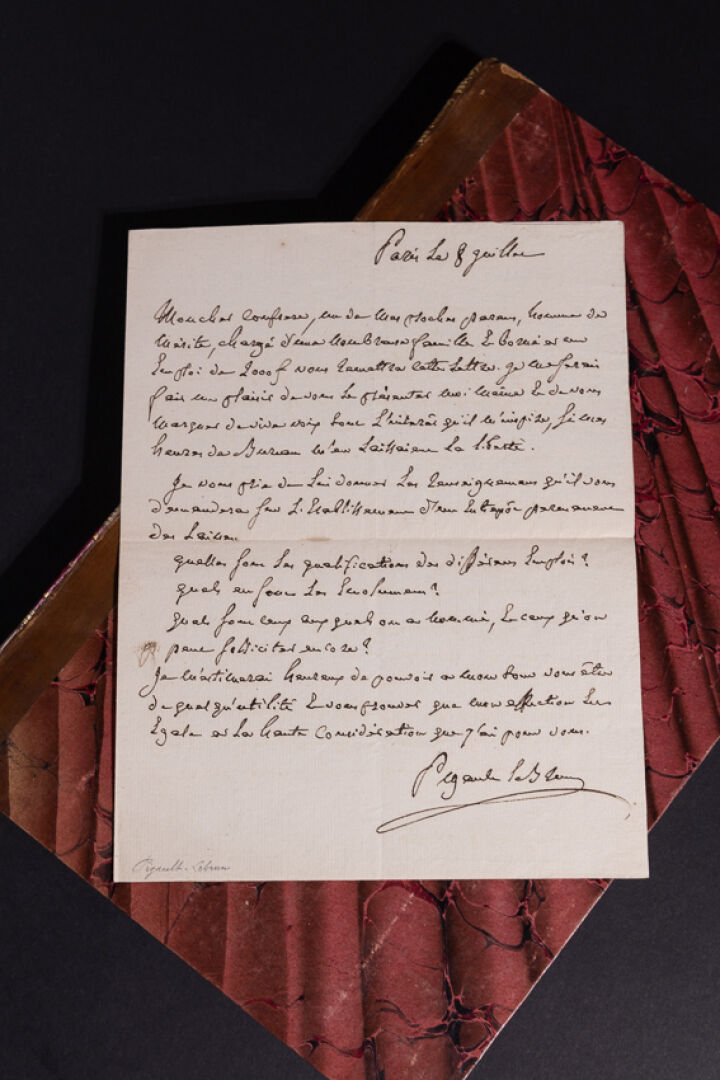 Paris Le 8 Juillet
Mon cher confrere, un de mes proches parens, homme de
mérite, chargé d'une nombreuse famille Et borné a un
Emploi de 2000f vous remettra cette Lettre. je me ferais
fais un plaisir de vous Le présenter moi même Et de vous
marquer de vive voix tout L'intérêt qu'il m'inspire, si mes
heures de Bureau m'en Laissaient La liberté.
Je vous prie de Lui donner Les renseignemens qu'il vous
demandera sur L'Etablissement d'un Entrepôt permanent
des
quelles sont Les qualifications des différens Emplois?
quels en sont Les Emolumens?
quels sont ceux auxquels on a nommé, Et ceux qu'on
peut solliciter encore?
Je m'estimerai heureux de pouvoir a mon tour vous être
de quelqu'utilité Et vous prouver que mon affection Est
Egale a La haute Considération que j'ai pour vous.
Pigault LeBrun
Pigault-Lebrun